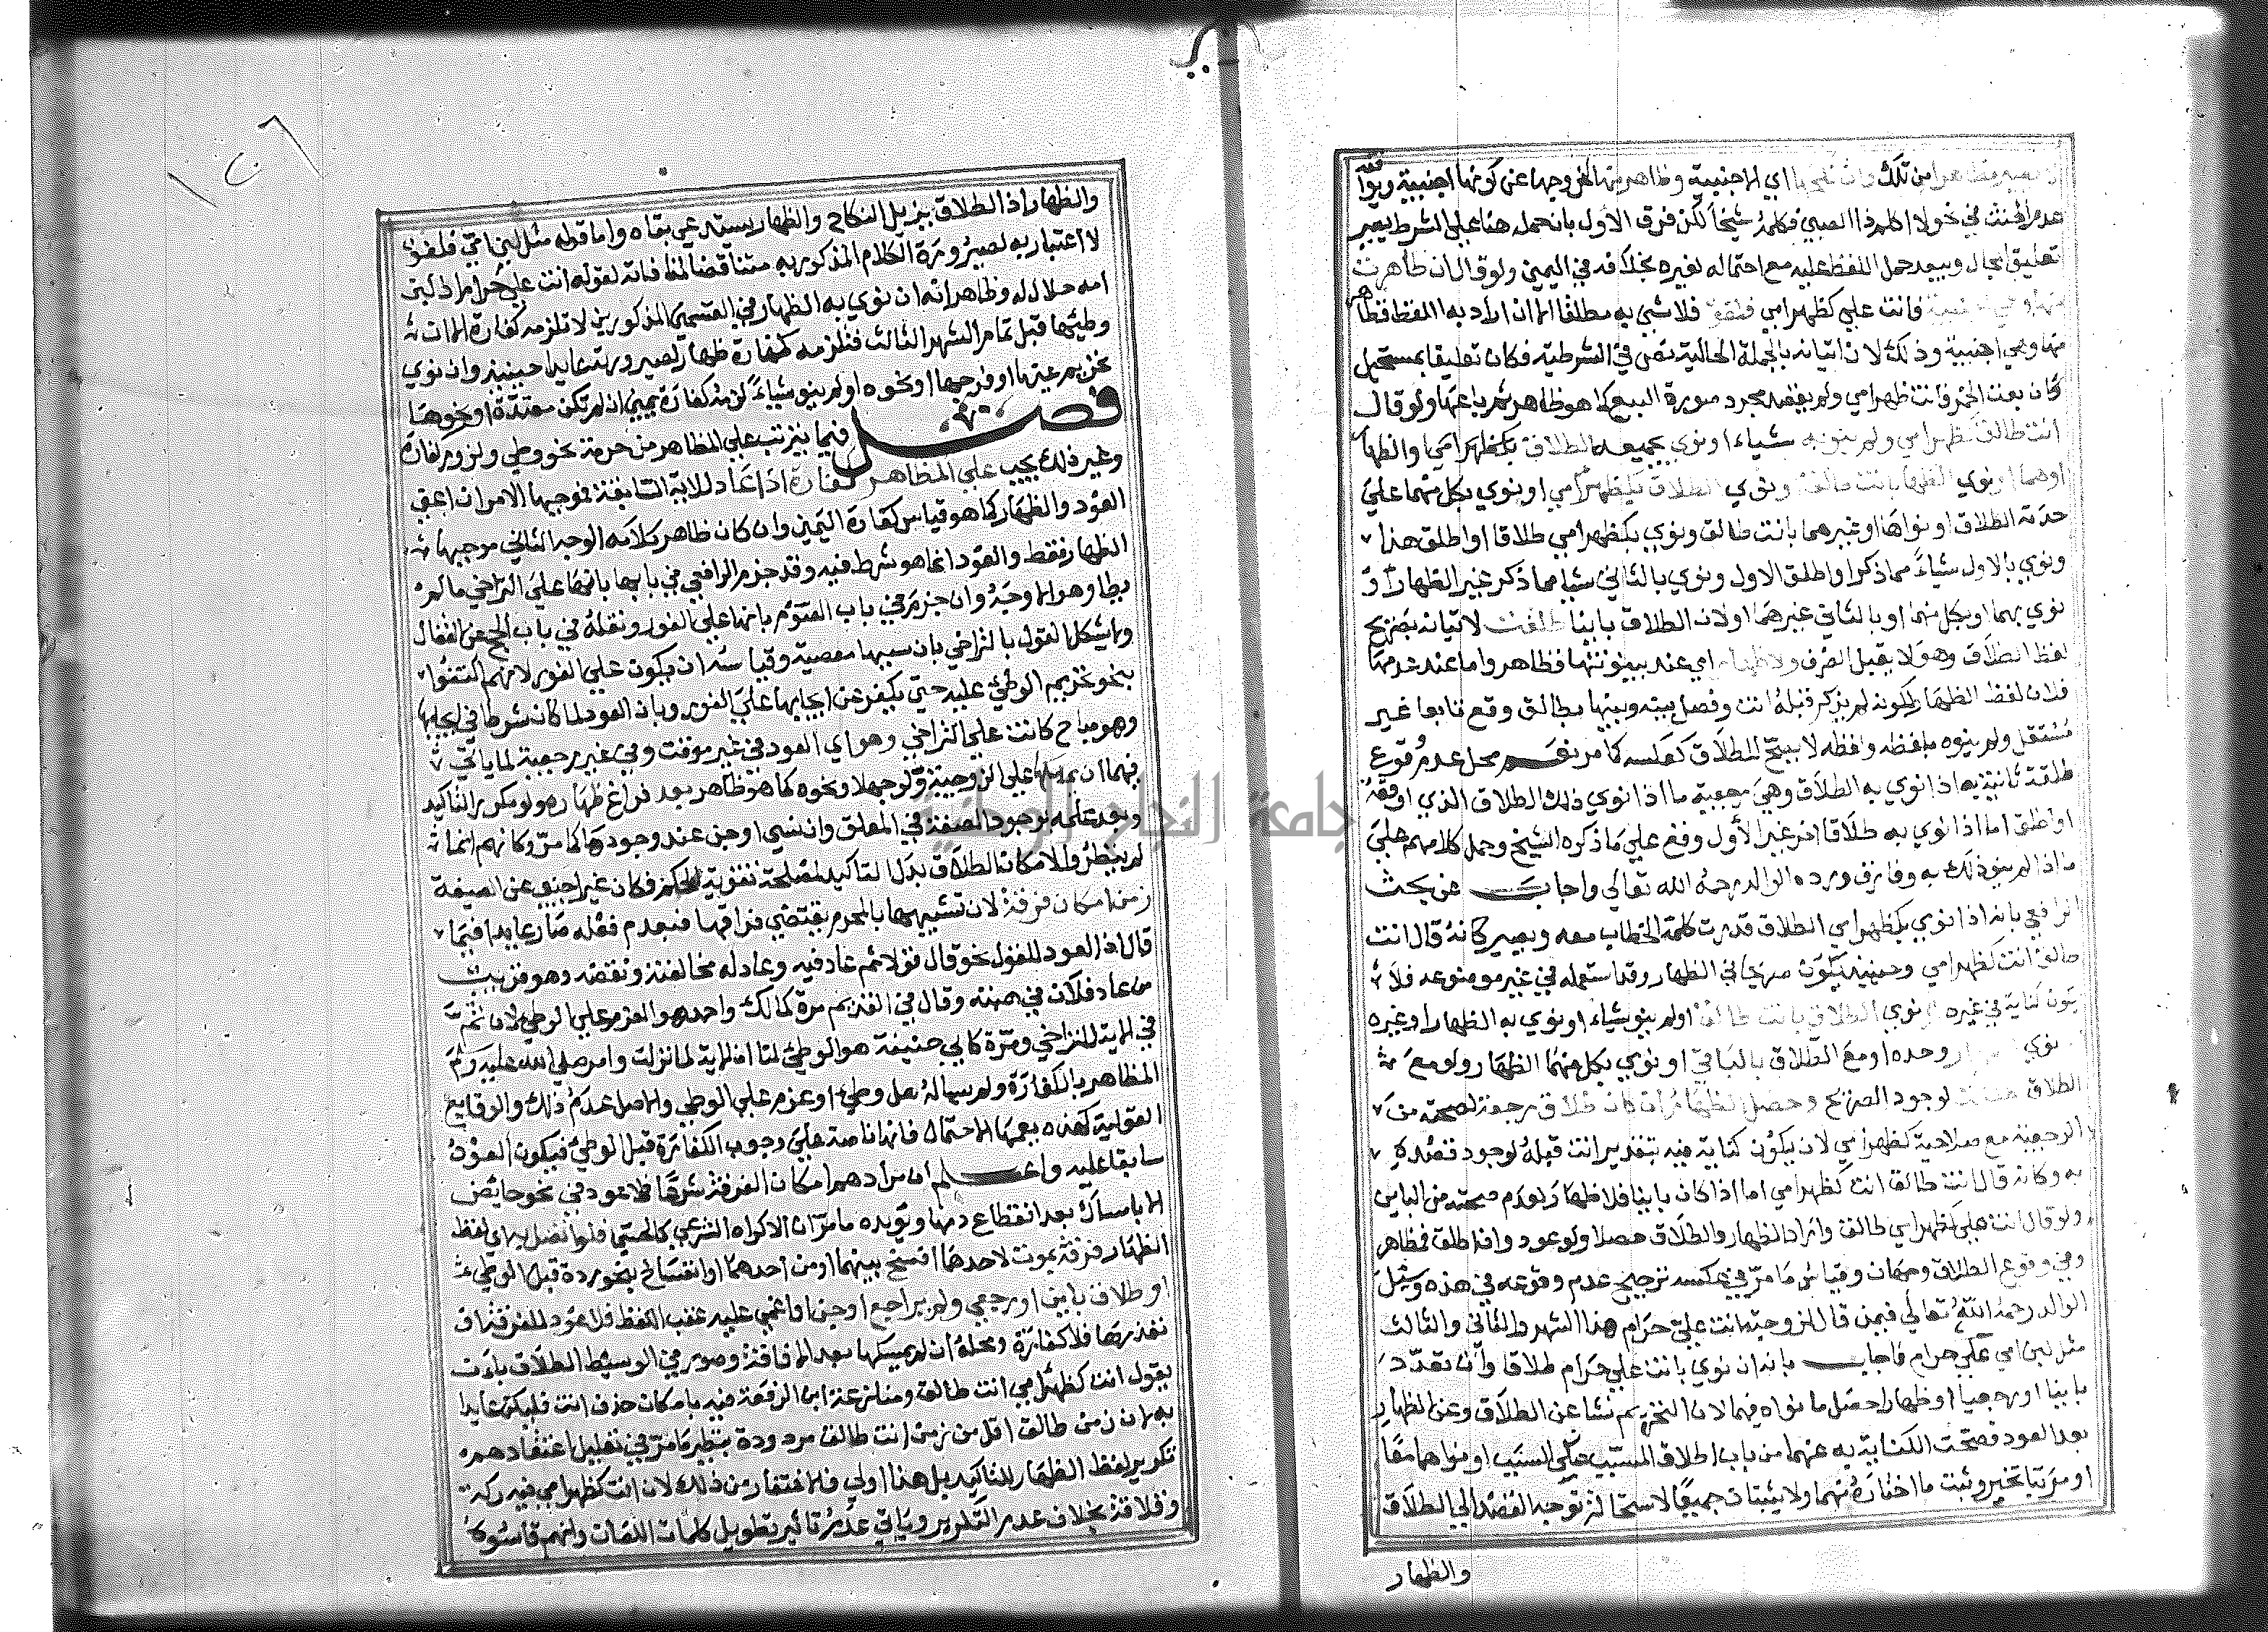 لا يصير مظاهرا من تلك وان نكحها اي الاجنبية وظاهر منها لخروجها عن كونها اجنبية ويوافقه
عدم الحنث في نحو لا اكلم ذا الصبي فكلمه شيخا لكن فرق الاول بان حمله هنا على الشرط يصير
تعليق بمحال ويبعد حمل اللفظ عليه مع احتماله لغيره بخلافه في اليمين ولو قال ان ظاهرت
منها وهي اجنبية فانت علي كظهر امي فلغو فلا شي به مطلقا الا ان اراد به اللفظ فظاهر
منها وهي اجنبية وذلك لان اتيانه بالجملة الحالية نص في الشرطية فكان تعليقا بمستحيل
كان بعت الخمر فانت كظهر امي ولم يقصد مجرد صورة البيع كما هو ظاهر ثم باعها ولو قال
انت طالق كظهر امي ولم ينو به شياء او نوى بجميعه الطلاق بكظهر امي والظها
او هما او نوى الظهار بانت طالق ونوي الطلاق بكظهر امي او نوي بكل منهما على
حدته الطلاق او نواها او غيرهما بانت طالق ونوي بكظهر امي طلاقا او اطلق هذا
ونوي بالاول شياء مما ذكر او اطلق الاول ونوي بالثاني شيا مما ذكر غير الظهار او
نوي بهما او بكل منهما او بالثاني غيرهما او لان الطلاق باينا طلقت لاتيانه بصريح
لفظ الطلاق وهو لا يقبل الصرف ولا ظهار امي عند بينونتها فظاهر واما عند عدمها
فلان لفظ الظهار لكونه لم يذكر قبله انت وفصل بينه وبينها بطالق وقع تابعا غير
مستقل ولم ينوه بلفظه ولفظه لا ينتج الطلاق كعكسه كما مر نعم محل عدم وقوع
طلقة ثانية به اذا نوى به الطلاق وهي رجعية ما اذا نوي ذلك الطلاق الذي اوقعه
او اطلق اما اذا نوي به طلاقا اخر غير الاول وقع علي ما ذكره الشيخ وحمل كلامهم على
ما اذا لم ينو ذلك به وفارق ورده الوالد رحمه الله تعالي واجاب عن بحث
الرافعي بانه اذا نوي بكظهر امي الطلاق قدرت كلمة الخطاب معه ويصير كانه قال انت
طالق انت كظهر امي وحينئذ يكون صريحا في الظهار وقد استعمله في غير موضوعه فلا
يكون كناية في غيره او نوي الطلاق بانت طالق او لم ينو شياء او نوي به الظهار او غيره
نوي وحده او مع الطلاق بالباقي او نوي بكل منهما الظهار ولو مع
الطلاق لوجود الصريح وحصل الظهار ان كان طلاق رجعة لصحته من
الرجعية مع صلاحية كظهر امي لان يكون كناية فيه بتقدير انت قبله لوجود قصده
به وكانه قال انت طالق انت كظهر امي اما اذا كان باينا فلا ظهار لعدم صحته من الباين
ولو قال انت علي كظهر امي طالق واراد الظهار والطلاق حصلا ولو عود وان اطلق فمظاهر
وفي وقوع الطلاق وجهان وقياس ما مر في عكسه ترجيح عدم وقوعه في هذه وسئل
الوالد رحمه الله تعالي فيمن قال لزوجته انت علي حرام هذا الشهر والثاني والثالث
مثل لبن امي علي حرام فاجاب بانه ان نوي بانت علي حرام طلاقا وان تعدد
باينا او رجعيا او ظهارا حصل ما نواه فيهما لان التحريم نشا عن الطلاق وعن الظهار
بعد العود فصحت الكناية به عنهما من باب اطلاق المسبب على السبب او نواهما معا
او مرتبا تخير وثبت ما اختاره منهما ولا يثبتان جميعا لاستحالة توجه القصد الي الطلاق
والظهار
والظهار اذ الطلاق يزيل النكاح والظهار يستدعي بقاه واما قوله مثل لبن امي فلغو
لا اعتبار به لصيرورة الكلام المذكور به متناقضا لغا فانه لقوله انت علي حرام اذ لبن
امه حلال له وظاهر انه ان نوي به الظهار في القسمين المذكورين لا تلزمه كفارة الا ان
وطئها قبل تمام الشهر الثالث فتلزمه كفارة ظهار لصيرورته عايدا حينئذ وان نوي
تحريم عينها او فرجها او نحوه او لم ينو شياء لزمه كفارة يمين ان لم تكن معتدة او نحوها
فصل فيما يترتب علي المظاهر من حرمة نحو وطي ولزوم كفارة
وغير ذلك يجب علي المظاهر كفارة اذا عاد للاية السابقة فموجبها الامران اعني
العود والظهار كما هو قياس كفارة اليمين وان كان ظاهر كلامه الوجه الثاني موجبها
الظهار فقط والعود انما هو شرط فيه وقد جزم الرافعي في بابها بانها علي التراخي ما لم
يطا وهو الاوجه وان جزم في باب الصوم بانها علي الفور ونقله في باب الحج عن القفال
ولا يشكل القول بالتراخي بان سببها معصية وقياسه ان يكون علي الفور لانهم اكتفوا
بنحو تحريم الوطئ عليه حتي يكفر عن ايجابها علي الفور وبان العود لما كان شرطا في ايجابها
وهو مباح كانت علي التراخي وهو اي العود في غير موقت وفي غير رجعية لما ياتي
فيهما ان يمسكها علي الزوجية ولو جهلا ونحوه كما هو ظاهر بعد فراغ ظهاره ولو مكررا للتاكيد
وبعد علمه بوجود الصفة في المعلق وان نسي او جن عند وجودها كما مر وكانهم انما
لم ينظروا لامكان الطلاق بدل التاكيد لمصلحة تقوية الحكم فكان غير اجنبي عن الصيغة
زمن امكان فرقة لان تشبيهها بالمحرم يقتضي فراقها فبعدم فعله صار عايدا فيما
قال اذ العود للقول نحو قال قولا ثم عاد فيه وعاد له مخالفته ونقضه وهو قريب
من عاد فلان في هبته وقال في القديم مرة كمالك واحمد هو العزم علي الوطي لان ثم
في الاية للتراخي ومرة كابي حنيفة هو الوطئ لنا ان الاية لما نزلت وامر صلي الله عليه وسلم
المظاهر بالكفارة ولم يساله هل وطئ او عزم علي الوطي والاصل عدم ذلك والوقايع
القولية كهذه يعمها الاحتمال فانها ناصة علي وجوب الكفارة قبل الوطئ فيكون العود
سابقا عليه واعلم ان مرادهم امكان الفرقة شرعا فلا عود في نحو حايض
الا بامساك بعد انقطاع دمها ويؤيده ما مر ان الاكراه الشرعي كالحسي فلو اتصل به اي لفظ
الظهار فرقة بموت لاحدهما او فسخ بينهما او من احدهما او انفساخ بنحو ردة قبل الوطئ
او طلاق باين او رجعي ولم يراجع او جن او اغمي عليه عقب اللفظ فلا عود للفرقة او
تعذرها فلا كفارة ومحله ان لم يمسكها بعد الافاقة وصور في الوسيط الطلاق بان
يقول انت كظهر امي انت طالق ومنازعة ابن الرفعة فيه بامكان حذف انت فليكن عايدا
به لان زمن طالق اقل من زمن انت طالق مردودة بنظير ما مر في تعليل اعتقادهم
تكرير لفظ الظهار للتاكيد بل هذا اولي فالاغتفار من ذلك لان انت كظهر امي فيه ركة
وقلاقة بخلاف عدم التكرير وياتي عدم تاثير تطويل كلمات اللعان وانهم قاسوه